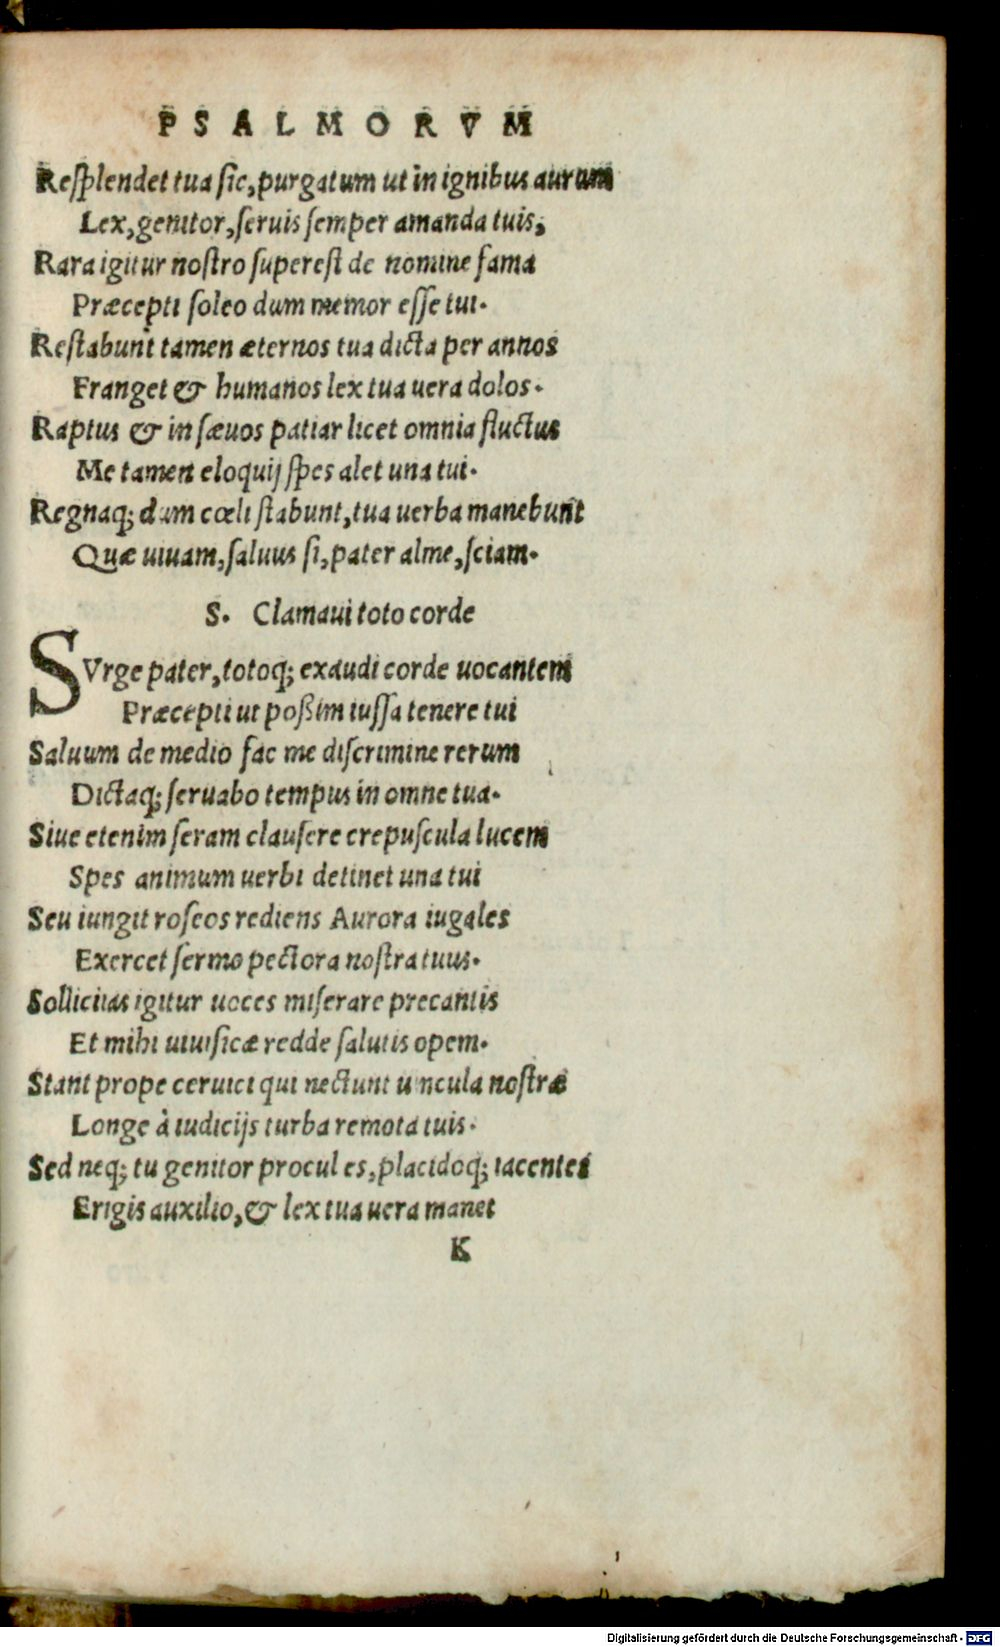 PSALMORVM
Reſplendet tua ſic, purgatum ut in ignibus aurum
Lex, genitor, ſeruis ſemper amanda tuis,
Rara igitur noſtro ſupereſt de nomine fama
Præcepti ſoleo dum memor eſſe tui.
Reſtabunt tamen æternos tua dicta per annos
Franget & humanos lex tua uera dolos.
Raptus & in ſæuos patiar licet omnia fluctus
Me tamen eloquij ſpes alet una tui.
Regnaq; dum cœli ſtabunt, tua uerba manebunt
Quæ uiuam, ſaluus ſi, pater alme, ſciam.
S. Clamaui toto corde
SVrge pater, totoq; exaudi corde uocantem
Præcepti ut poßim iuſſa tenere tui
Saluum de medio fac me diſcrimine rerum
Dictaq; ſeruabo tempus in omne tua.
Siue etenim ſeram clauſere crepuſcula lucem
Spes animum uerbi detinet una tui
Seu iungit roſeos rediens Aurora iugales
Exercet ſermo pectora noſtra tuus.
Sollicitas igitur uoces miſerare precantis
Et mihi uiuificæ redde ſalutis opem.
Stant prope ceruici qui nectunt uincula noſtræ
Longe à iudicijs turba remota tuis.
Sed neq; tu genitor procul es, placidoq; iacentes
Erigis auxilio, & lex tua uera manet
K
Digitalisierung gefördert durch die Deutsche Forschungsgemeinschaft - DFG